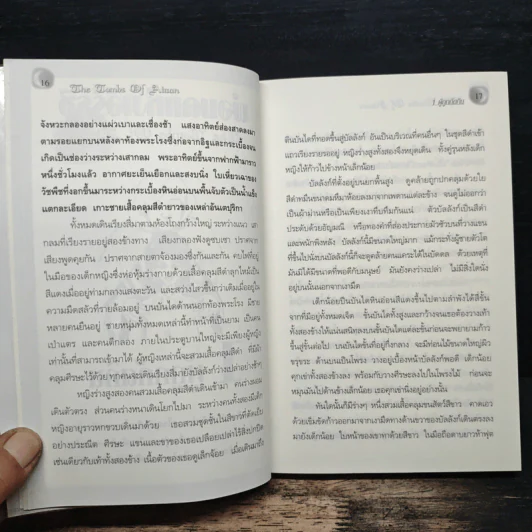 16
The Tombs Of Atuan
จังหวะกลองอย่างแผ่วเบาและเชื่องช้า แสงอาทิตย์ส่องสาดลงมา
ตามรอยแยกบนหลังคาท้องพระโรงซึ่งก่อจากอิฐและกระเบื้อง
เกิดเป็นช่องว่างระหว่างเสากลม พระอาทิตย์ขึ้นจากฟากฟ้ามาราว
หนึ่งชั่วโมงแล้ว อากาศยะเยือกเยือกและสงบนิ่ง ใบเหี่ยวเฉาของ
วัชพืชที่งอกขึ้นมาระหว่างกระเบื้องหินอ่อนบนพื้นจับตัวเป็นน้ำแข็ง
แตกละเอียด เกาะชายเสื้อคลุมสีดำยาวของเหล่าอันเตบุริกา
ทั้งหมดเดินเรียงสี่มาตามห้องโถงกว้างใหญ่ ระหว่างแนว
กลมที่เรียงรายอยู่สองข้างทาง เสียงกลองฟังดูซบเซา ปราศจาก
เสียงพูดคุยกัน ปราศจากสายตาจ้องมองซึ่งกันและกัน คบไฟที่อยู่
ในมือของเด็กหญิงซึ่งห่อหุ้มร่างกายด้วยเสื้อคลุมสีดำลุกโหมเป็น
สีแดงเมื่ออยู่ท่ามกลางแสงตะวัน และสว่างไสวขึ้นกว่าเดิมเมื่ออยู่ใน
ความมืดสลัวที่รายล้อมอยู่ บนบันไดด้านนอกท้องพระโรง มีชาย
หลายคนยืนอยู่ ชายหนุ่มทั้งหมดเหล่านี้ทำหน้าที่เป็นยาม เป็นคน
เป่าแตร และคนตีกลอง ภายในประตูบานใหญ่จะมีเพียงผู้หญิง
เท่านั้นที่สามารถเข้ามาได้ ผู้หญิงเหล่านี้จะสวมเสื้อคลุมสีดำ ที่มีผ้า
คลุมศีรษะไว้ด้วยทุกคนจะเดินเรียงสี่มายังบัลลังก์ว่างเปล่าอย่างช้าๆ
หญิงร่างสูงสองคนสวมเสื้อคลุมสีดำเดินเข้ามา คนร่างผอม
เดินตัวตรง ส่วนคนร่างหนาเดินโยกไปมา ระหว่างคนทั้งสองมีเด็ก
หญิงอายุราวหกขวบเดินมาด้วย เธอสวมชุดชั้นในสีขาวที่ตัดเย็บ
อย่างประณีต ศีรษะ แขนและขาของเธอเปลือยเปล่าไร้สิ่งปกปิด
เช่นเดียวกับเท้าทั้งสองข้าง เนื้อตัวของเธอดูเล็กจ้อย เมื่อเดินมาถึง
1. ผู้ถูกกลืนกิน
17
ตีนบันไดที่ทอดขึ้นสู่บัลลังก์ อันเป็นบริเวณที่คนอื่นๆ ในชุดสีดำเข้า
แถวเรียงรายรออยู่ หญิงร่างสูงทั้งสองจึงหยุดเดิน ทั้งคู่รุนหลังเด็ก
หญิงให้ก้าวไปข้างหน้าเล็กน้อย
บัลลังก์ที่ตั้งอยู่บนยกพื้นสูง ดูคล้ายถูกปกคลุมด้วยใย
สีดำผืนขนาดมหึมาที่ห้อยลงมาจากเพดานแต่ละข้าง จนดูไม่ออกว่า
เป็นผ้าม่านหรือเป็นเพียงเงาที่บทึบกันแน่ ตัวบัลลังก์เป็นสีดำ
ประดับด้วยอัญมณี หรือทองคำที่ส่องประกายมัวซัวบนที่วางแขน
และพนักพิงหลัง บัลลังก์นี้มีขนาดใหญ่มาก แม้กระทั่งผู้ชายตัวโต
ที่ขึ้นไปนั่งบนบัลลังก์นี้ก็จะดูคล้ายคนแคระได้ในบัดดล ด้วยเหตุที่
มันมิได้มีขนาดที่พอดีกับมนุษย์ มันยังคงว่างเปล่า ไม่มีสิ่งใดนั่ง
อยู่บนนั้นนอกจากเงามืด
เด็กน้อยปีนบันไดหินอ่อนสีแดงขึ้นไปตามลำพังได้สี่ขั้น
จากที่มีอยู่ทั้งหมดเจ็ด ขั้นบันไดทั้งสูงและกว้างจนเธอต้องวางเท้า
ทั้งสองข้างให้แน่นสนิทลงบนขั้นบันไดแต่ละขั้นก่อนจะพยายามก้าว
ขึ้นสู่ขั้นต่อไป บนขั้นบันไดขั้นที่อยู่กึ่งกลาง จะมีท่อนไม้ขนาดใหญ่ผิว
ขรุขระ ด้านบนเป็นโพรง วางอยู่เบื้องหน้าบัลลังก์พอดี เด็กน้อย
คุกเข่าทั้งสองข้างลง พร้อมกับวางศีรษะลงไปในโพรงไม้ ก่อนจะ
หมุนมันไปด้านข้างเล็กน้อย เธอคุกเข่านิ่งอยู่อย่างนั้น
ทันใดนั้นก็มีร่างๆ หนึ่งสวมเสื้อคลุมขนสัตว์สีขาว คาดเอว
ด้วยเข็มขัดก้าวออกมาจากเงามืดทางด้านขวาของบัลลังก์เดินตรงลง
มายังเด็กน้อย ใบหน้าของเขาทาด้วยสีขาว ในมือถือดาบยาวห้าฟุต